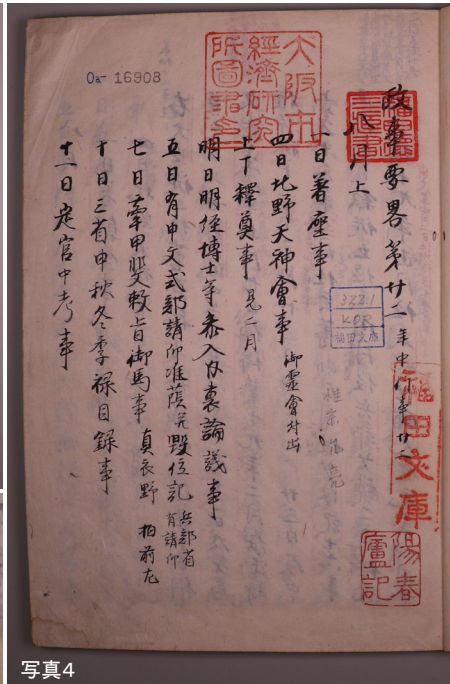 政事要略第廿二 年中行事廿二
八月上
一日着座事
四日北野天神會事 御霊會付出
上丁釋奠事 見二月
明日明経博士等参入内裏論議事
五日有申文式部請印准蔭并毀位記 兵部省有請印
七日牽甲斐勅旨御馬事 真衣野 柏前
十日三省申秋冬季禄目録事
十一日定官中考事
Oa- 16908
大阪市
經濟研究
所圖書之
322.1
KOR
福田文庫
福田文庫
陽春
廬記
写真4